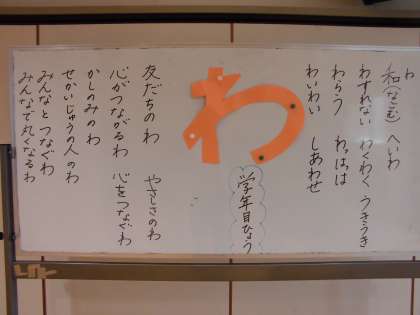 わ
和(なごむ) へいわ
わすれない わくわく うきうき
わらう わっはっは
わいわい しあわせ
わ
学年目ひょう
友だちのわ やさしさのわ
心がつながるわ 心をつなぐわ
かしのみのわ
せかいじゅうの人のわ
みんなとつなぐわ
みんなで丸くなるわ